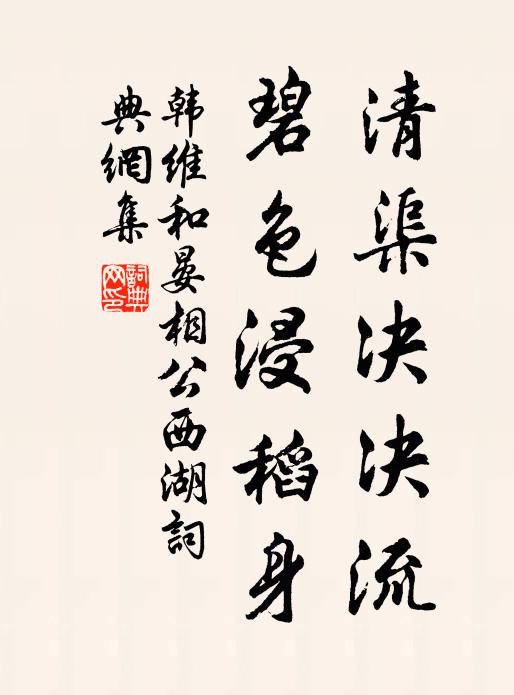 清渠决决流
碧色浸稻身
韩维和晏相公西湖詞
典網集
詞典網印